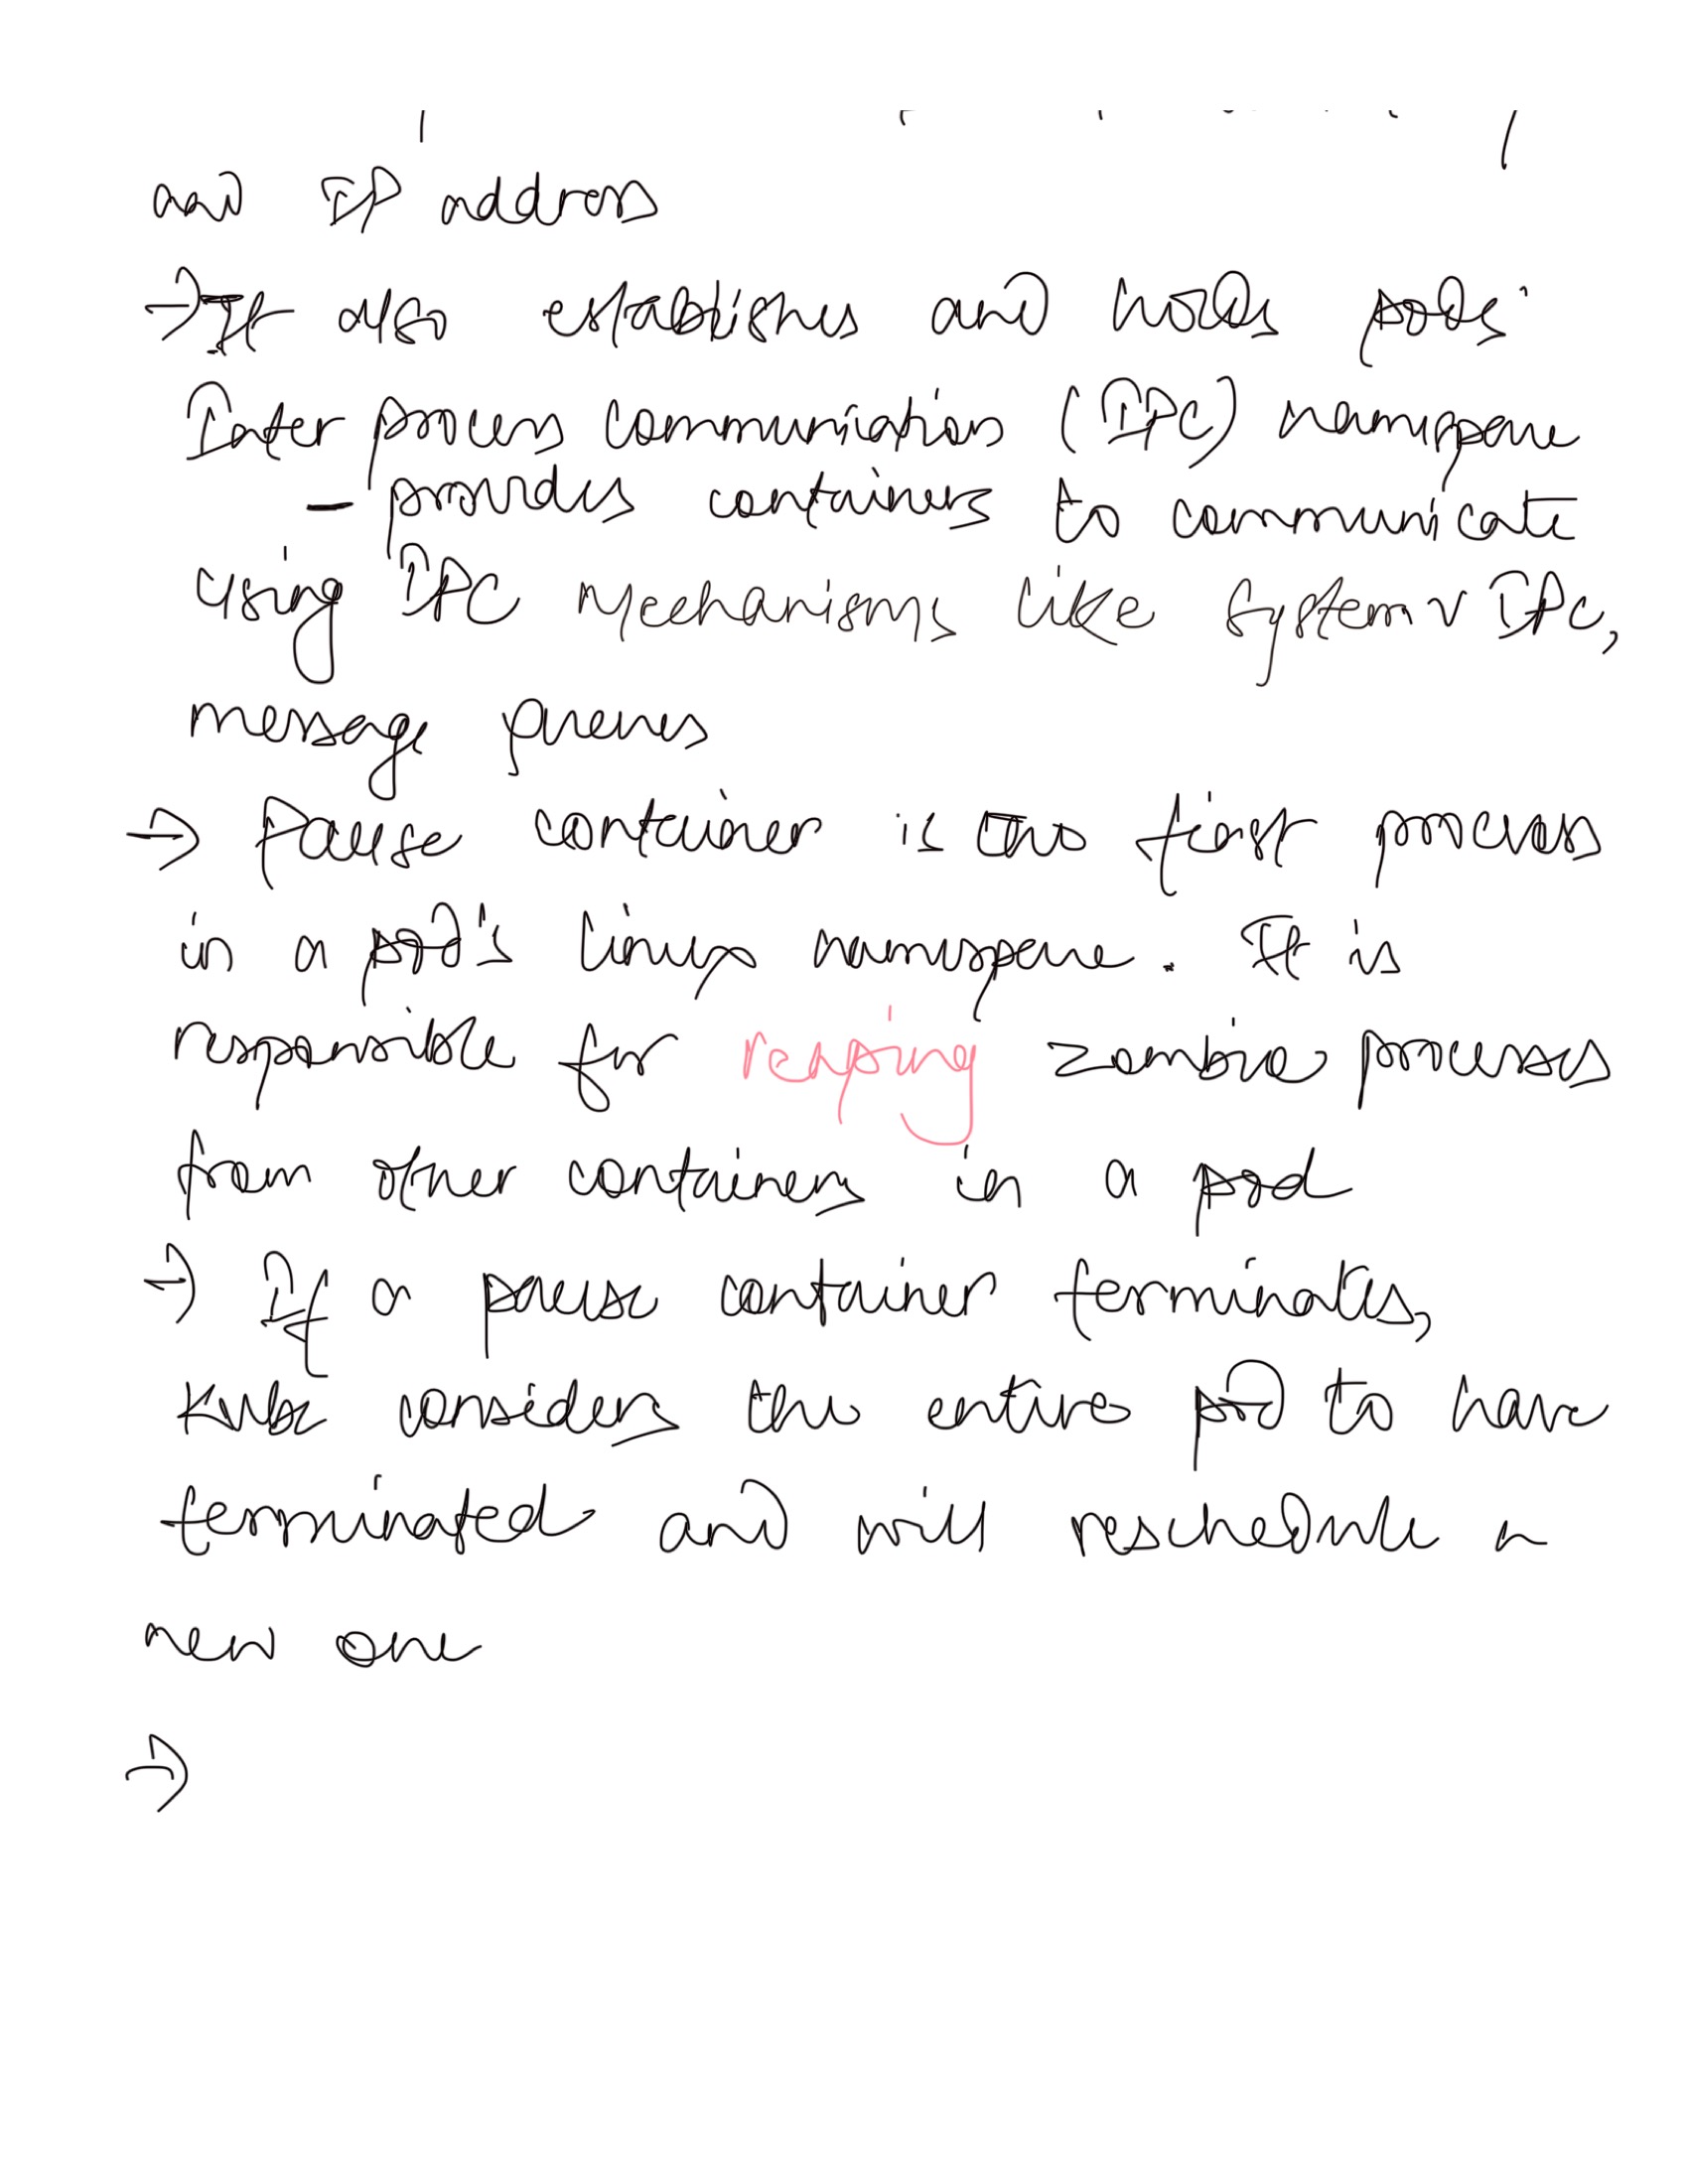 and IP address
→ It also establishes and holds pods'
Inter process communication (IPC) namespace
- provides containers to communicate
using IPC Mechanisms like System V IPC,
message queues
→ Pause container is the first process
in a pod's linux namespace. It is
responsible for reaping zombie processes
from other containers in a pod
→ If a pause container terminates,
Kube considers the entire pod to have
terminated and will reschedule a
new one
→